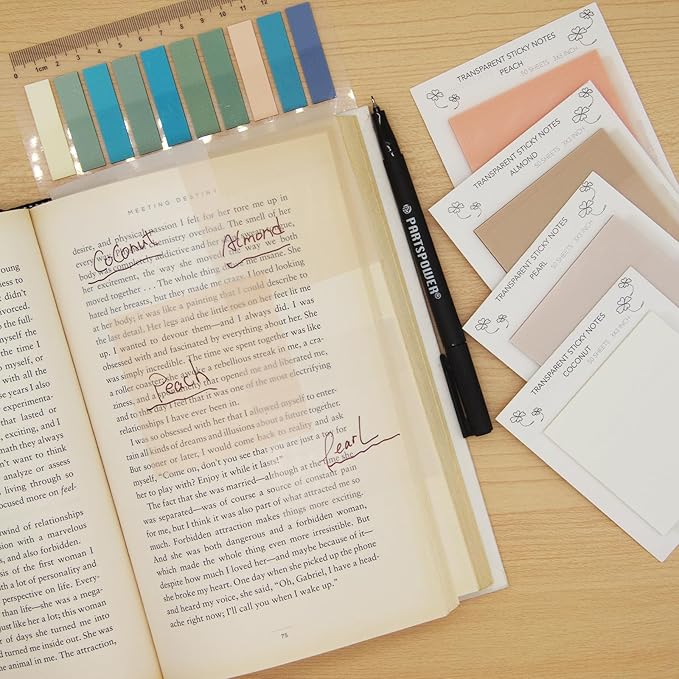 0 1cm 2 3 4 5 6 7 8 9 10 11 12
TRANSPARENT STICKY NOTES
PEACH
50 SHEETS 3X3 INCH
TRANSPARENT STICKY NOTES
ALMOND
50 SHEETS 3X3 INCH
TRANSPARENT STICKY NOTES
PEARL
50 SHEETS 3X3 INCH
TRANSPARENT STICKY NOTES
COCONUT
50 SHEETS 3X3 INCH
PARTSPOWER®
Coconut
Almond
Peach
Pearl
young
didn't
to the full-
the time I
myself, or
with all the
years I also
experimenta-
that lasted or
exciting, and I
math they always
don't want to think
analyze or assess
living through so
focused more on feel-
wind of relationships
with a marvelous
and also forbidden.
sis of the first woman I
with a lot of personality and
perspective on life. Every-
than life—she was a mega-
just like her a lot; this woman
of days she turned me into
turned me inside out. She was
the animal in me. The attraction,
MEETING DESTINY
desire, and physical passion I felt for her tore me up in
every chemistry overload. The smell of her
body was completely addictive and her way
her excitement, the way she moved the way we both
moved together . . . The whole thing was insane. She
hated her breasts, but they made me crazy. I loved looking
at her body; it was like a painting that I could describe to
the last detail. Her legs and the little roes on her feet lit me
up. I wanted to devour them—and I always did. I was
obsessed with and fascinated by everything about her. She
was simply incredible. The time we spent together was like
a roller coaster; she awoke a rebellious streak in me, a cra-
ziness, and a personality that opened me and liberated me,
and to this day I feel that it was one of the most electrifying
relationships I have ever been in.
I was so obsessed with her that I allowed myself to enter-
tain all kinds of dreams and illusions about a future together.
But sooner or later, I would come back to reality and ask
myself, “Come on, don't you see that you are just a toy for
her to play with? Enjoy it while it lasts!”
The fact that she was married—although at the time she
was separated—was of course a source of constant pain
for me, but I think it was also part of what attracted me so
much. Forbidden attraction makes things more exciting.
And she was both dangerous and a forbidden woman,
which made the whole thing even more irresistible. But
despite how much I loved her—and maybe because of it—
she broke my heart. One day when she picked up the phone
and heard my voice, she said, “Oh, Gabriel, I have a head-
ache right now; I'll call you when I wake up.”
75